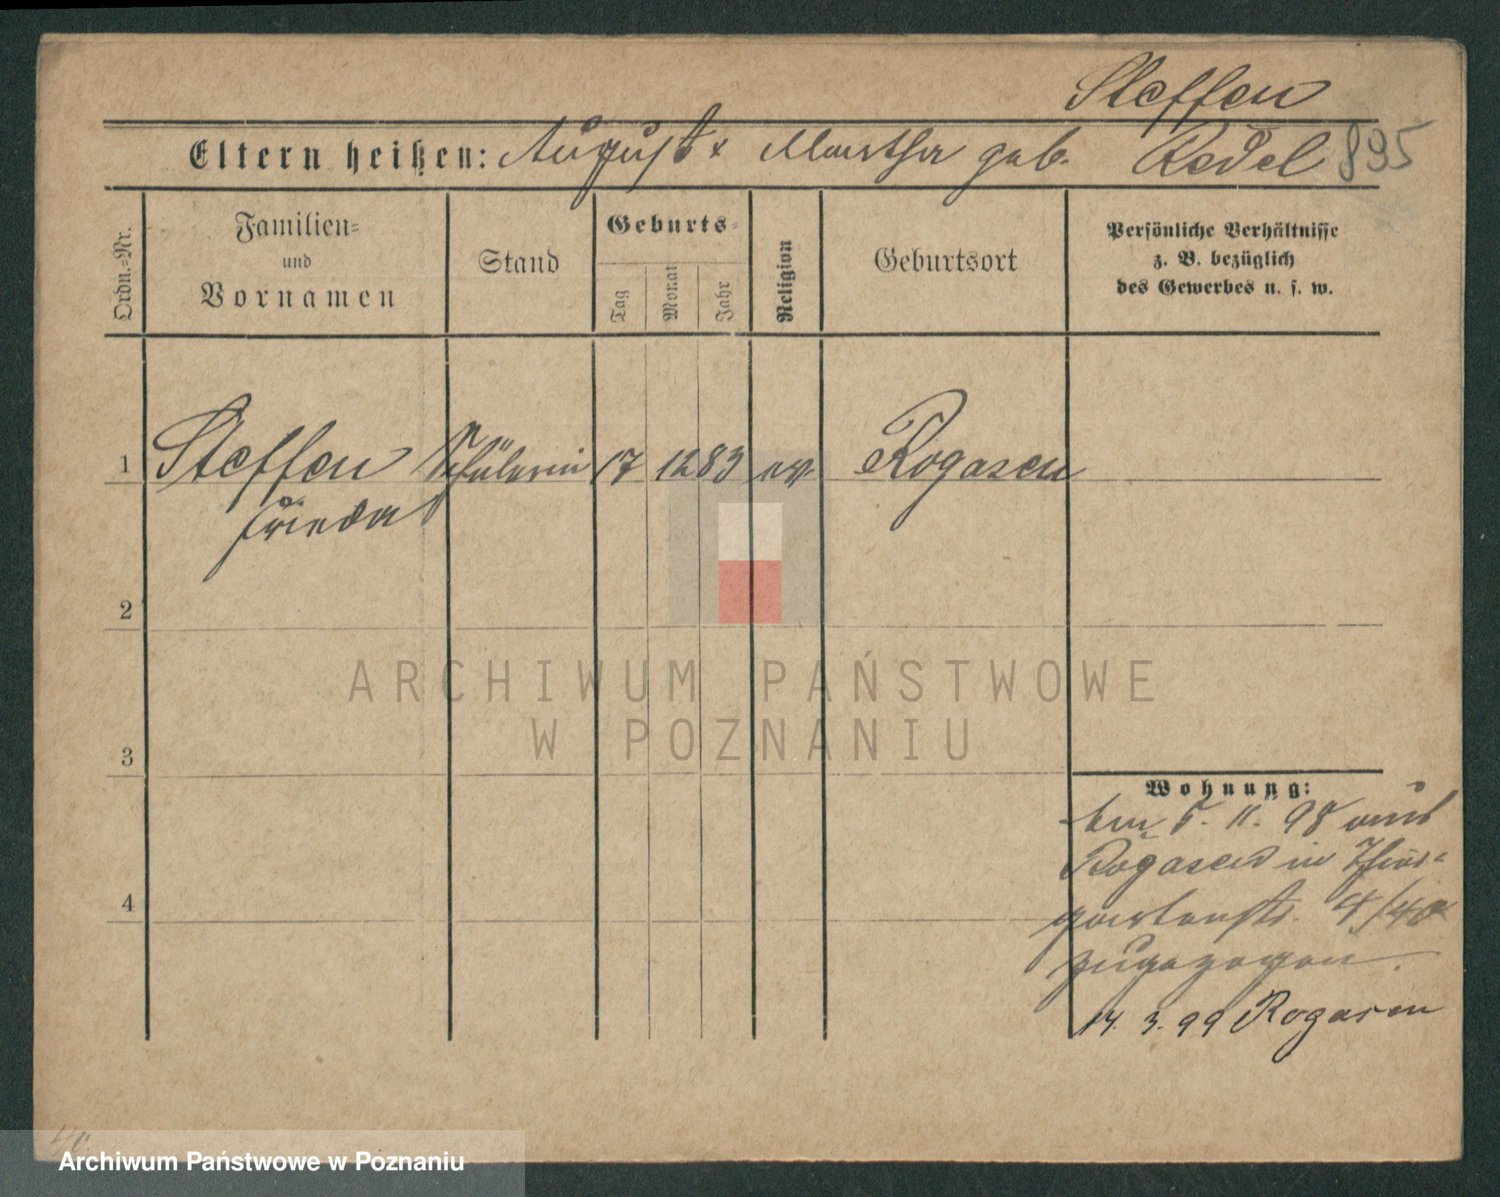 Steffen
Eltern heißen: August & Martha geb. Redel 895
Ordn.-Nr.
Familien-
und
Vornamen
Stand
Geburts-
Tag
Monat
Jahr
Religion
Geburtsort
Persönliche Verhältnisse
z. B. bezüglich
des Gewerbes u. s. w.
1 Steffen Schülerin 17 12 83 ev. Rogasen
Frieda
2
3
4
ARCHIWUM PAŃSTWOWE
W POZNANIU
Wohnung:
Am 5. 11. 98 aus
Rogasen in Thier-
gartenstr. 4/40
zugezogen.
14. 3. 99 Rogasen
Archiwum Państwowe w Poznaniu